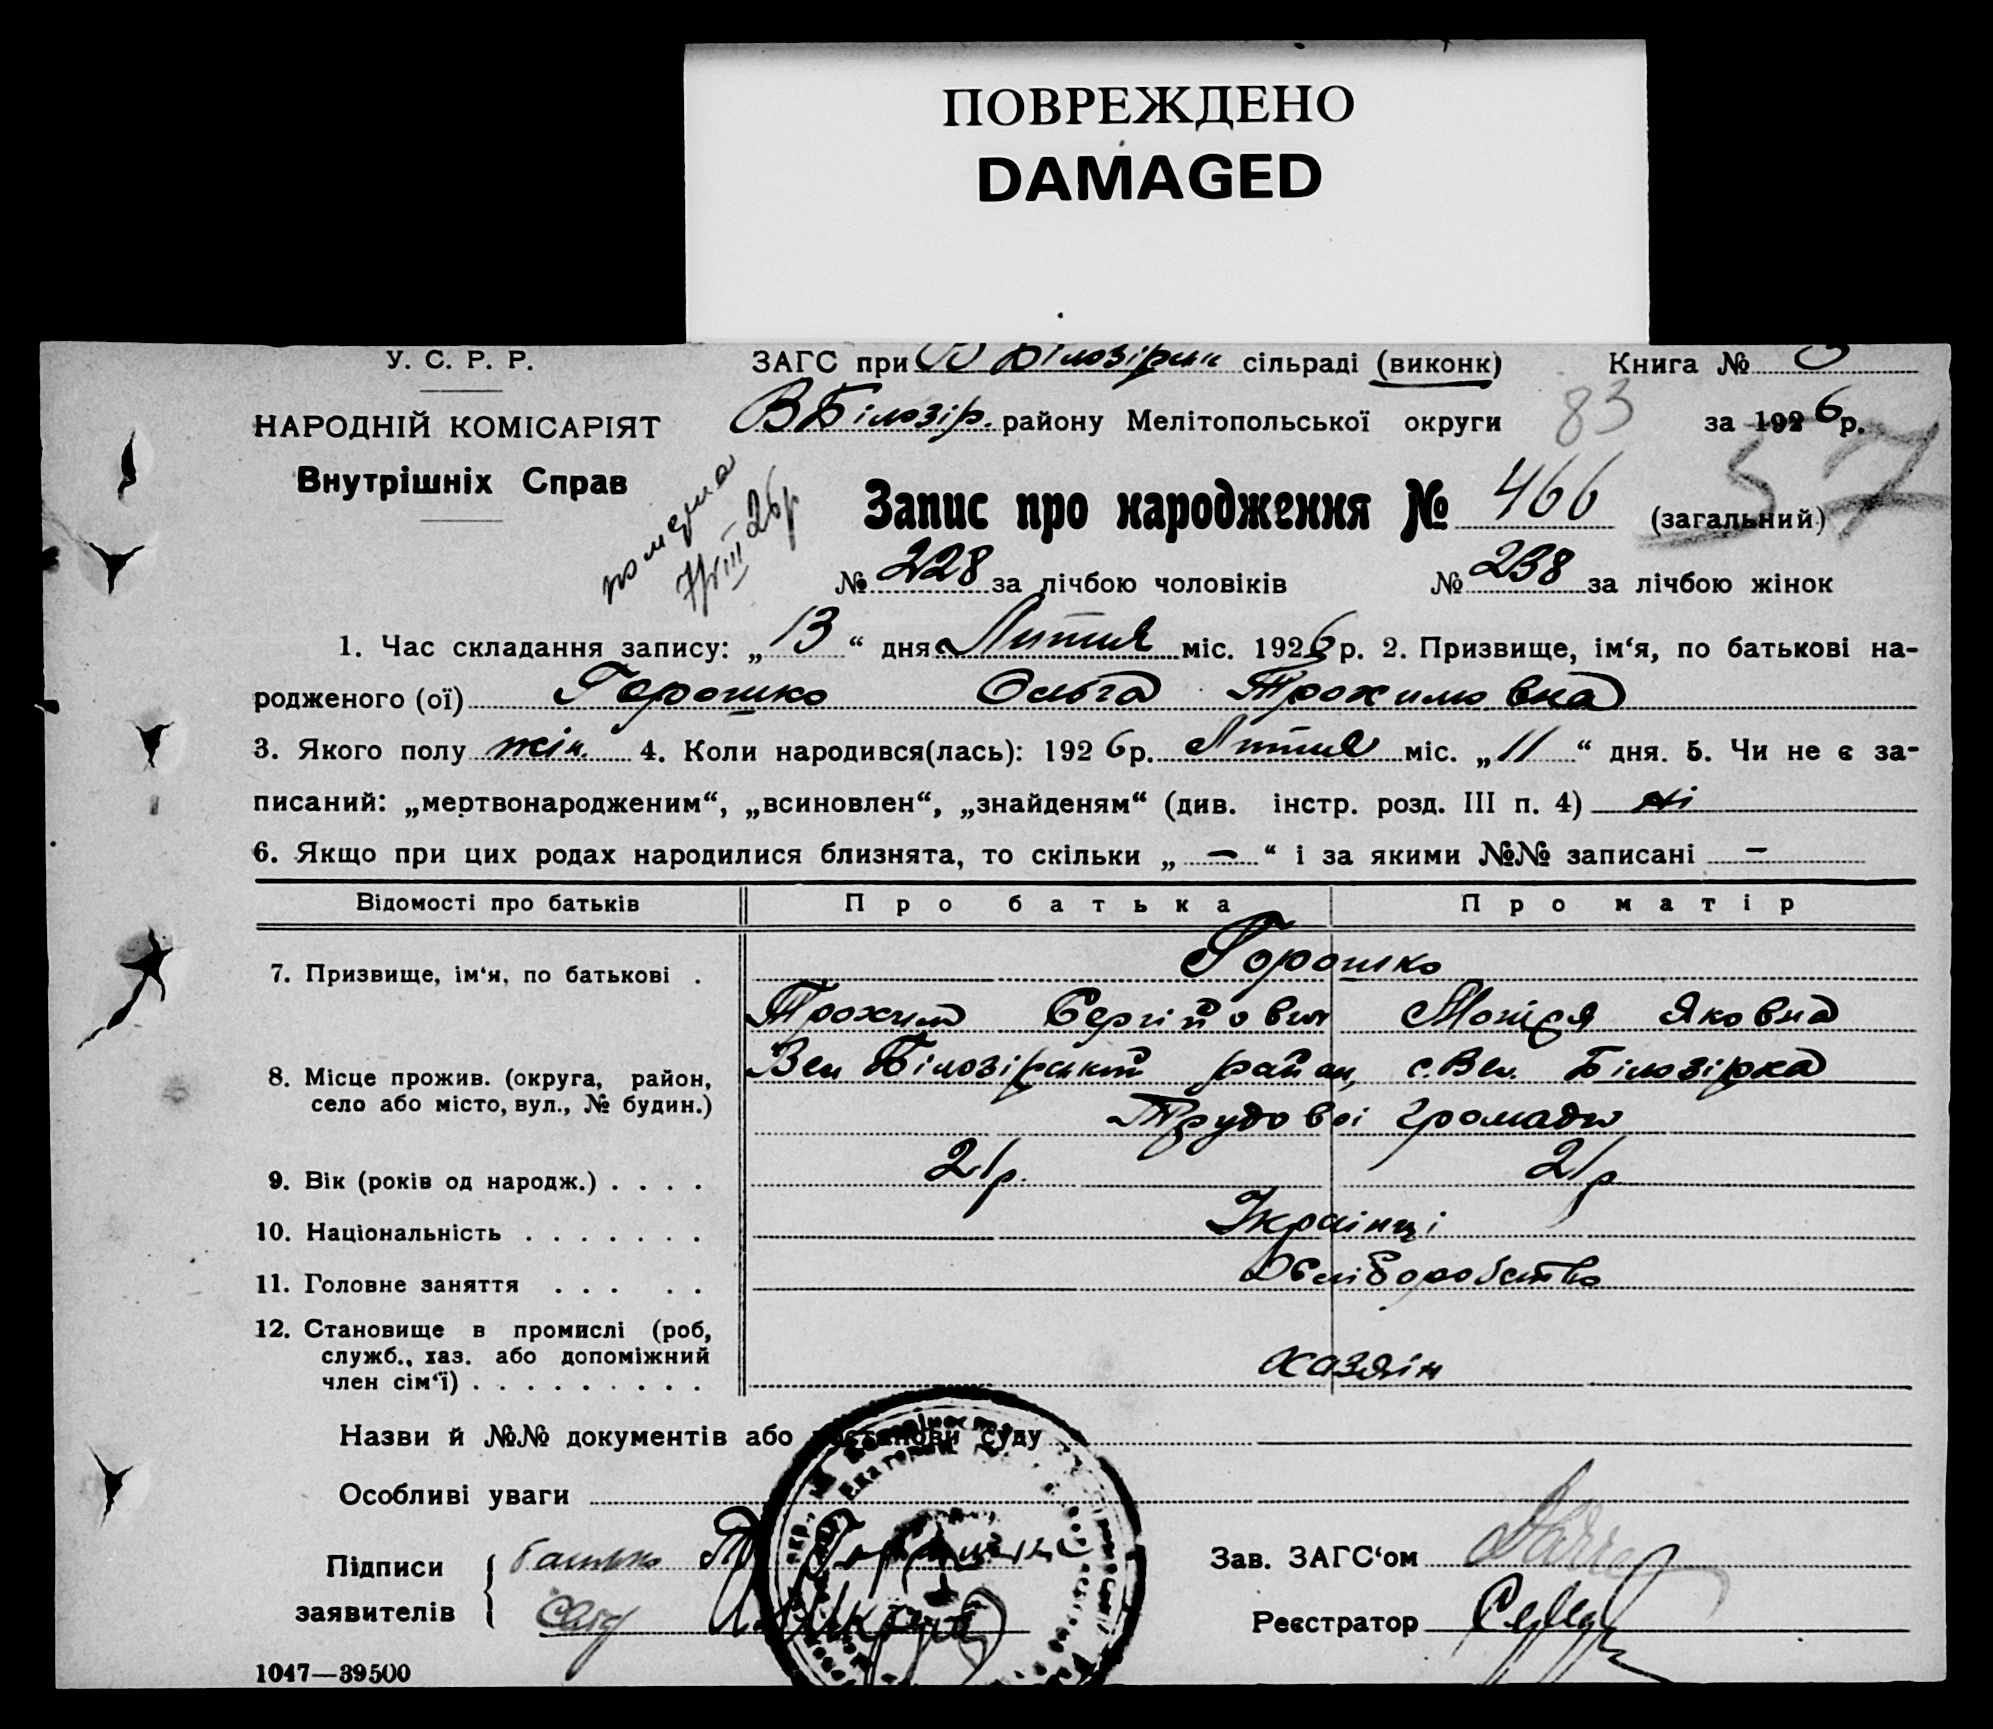 ПОВРЕЖДЕНО
DAMAGED
У. С. Р. Р.
ЗАГС при В Білозірськ сільраді (виконк)
Книга № 3
НАРОДНІЙ КОМІСАРІЯТ
В Білозір. району Мелітопольської округи
83
за 1926 р.
Внутрішніх Справ
57
померла
7/VIII 26 р
Запис про народження № 466 (загальний)
№ 228 за лічбою чоловіків № 238 за лічбою жінок
1. Час складання запису: „ 13 “ дня Липня міс. 1926 р. 2. Призвище, ім‘я, по батькові на-
родженого (ої) Горошко Ольга Трохимовна
3. Якого полу жін. 4. Коли народився(лась): 1926 р. Липня міс. „ 11 “ дня. 5. Чи не є за-
писаний: „мертвонародженим“, „всиновлен“, „знайденям“ (див. інстр. розд. III п. 4) ні
6. Якщо при цих родах народилися близнята, то скільки „ — “ і за якими №№ записані —
Відомості про батьків Про батька Про матір
7. Призвище, ім‘я, по батькові . Горошко
Трохим Сергійович Яковна
8. Місце прожив. (округа, район,
село або місто, вул., № будин.)
Вел Білозірський район, с. Вел. Білозірка
Трудової громади
9. Вік (років од народж.) . . . . 21 р. 21 р
10. Національність . . . . . . . Українці
11. Головне заняття . . . . . Хліборобство
12. Становище в промислі (роб,
служб., хаз. або допоміжний
член сім‘ї) . . . . . . . . . хазяін
Назви й №№ документів або постанови суду
Особливі уваги
Підписи
заявителів
батько
Зав. ЗАГС‘ом
Реєстратор
1047—39500